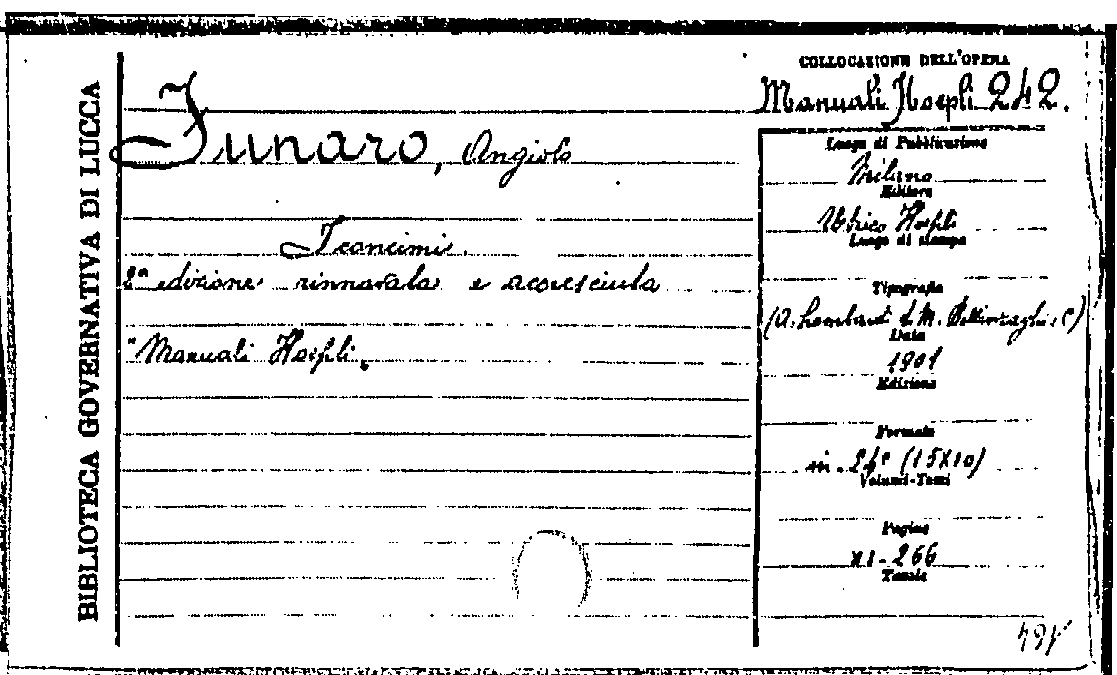 BIBLIOTECA GOVERNATIVA DI LUCCA
Funaro, Angiolo
I concimi.
2ª edizione rinnovata e accresciuta
"Manuali Hoepli.
COLLOCAZIONE DELL'OPERA
Manuali Hoepli 242.
Luogo di Pubblicazione
Milano
Editore
Ulrico Hoepli
Luogo di stampa
Tipografia
(A. Lombardi di M. Bellinzaghi, C)
Data
1901
Edizione
Formato
in. 24º (15X10)
Volumi-Tomi
Pagine
XI-266
Tavole